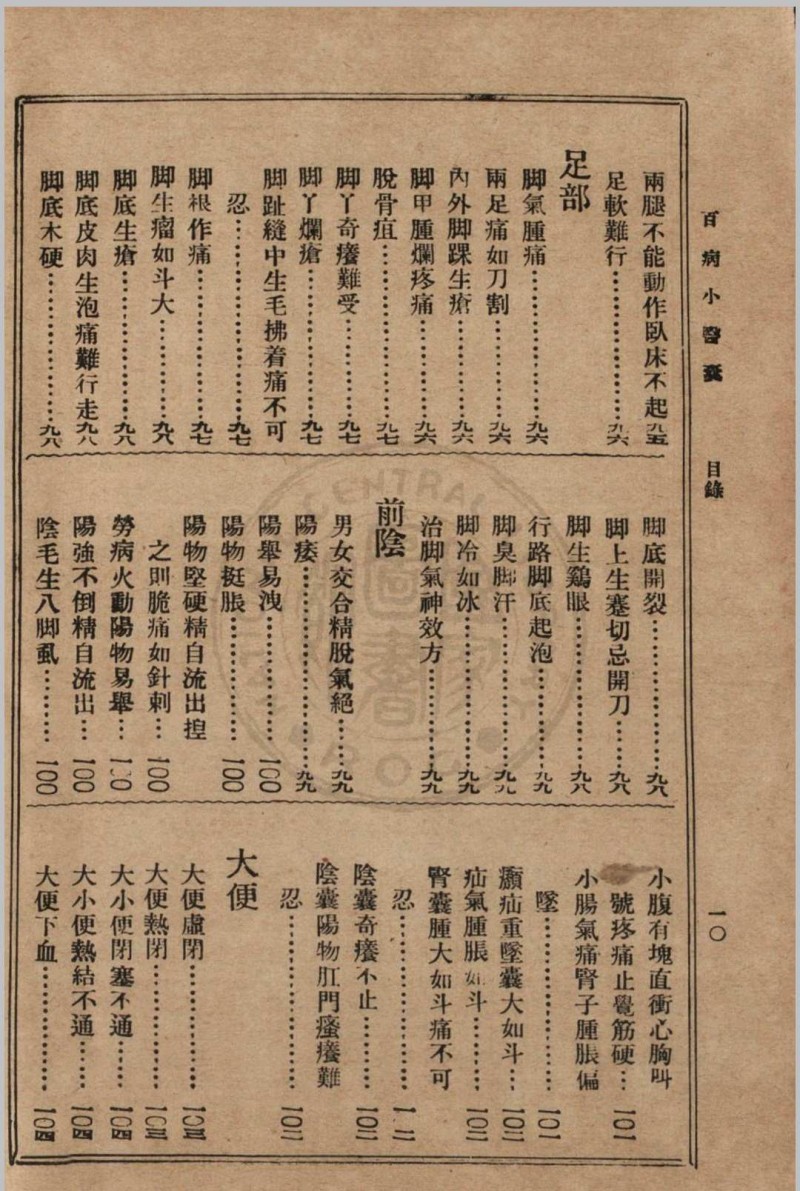 百病小醫囊　目錄　一〇
兩腿不能動作臥床不起九五
足軟難行………………九六
足部
脚氣腫痛………………九六
兩足痛如刀割…………九六
內外脚踝生瘡…………九六
脚甲腫爛疼痛…………九六
脫骨疽…………………九七
脚丫奇癢難受…………九七
脚丫爛瘡………………九七
脚趾縫中生毛拂着痛不可
忍………………………九七
脚根作痛………………九七
脚生瘤如斗大…………九八
脚底生瘡………………九八
脚底皮肉生泡痛難行走九八
脚底木硬………………九八
脚底開裂………………九八
脚上生蹇切忌開刀……九八
脚生鷄眼………………九八
行路脚底起泡…………九九
脚臭脚汗………………九九
脚冷如冰………………九九
治脚氣神效方…………九九
前陰
男女交合精脫氣絕……九九
陽痿……………………九九
陽舉易洩………………一〇〇
陽物挺脹………………一〇〇
陽物堅硬精自流出揑
之則脆痛如針刺…一〇〇
勞病火動陽物易舉…一〇〇
陽強不倒精自流出…一〇〇
陰毛生八脚虱………一〇〇
小腹有塊直衝心胸叫
號疼痛止覺筋硬…一〇一
小腸氣痛腎子腫脹偏
墜…………………一〇一
㿗疝重墜囊大如斗…一〇二
疝氣腫脹如斗………一〇二
腎囊腫大如斗痛不可
忍…………………一〇二
陰囊奇癢不止………一〇二
陰囊陽物肛門瘙癢難
忍…………………一〇二
大便
大便虛閉……………一〇三
大便熱閉……………一〇三
大小便閉塞不通……一〇四
大小便熱結不通……一〇四
大便下血……………一〇四